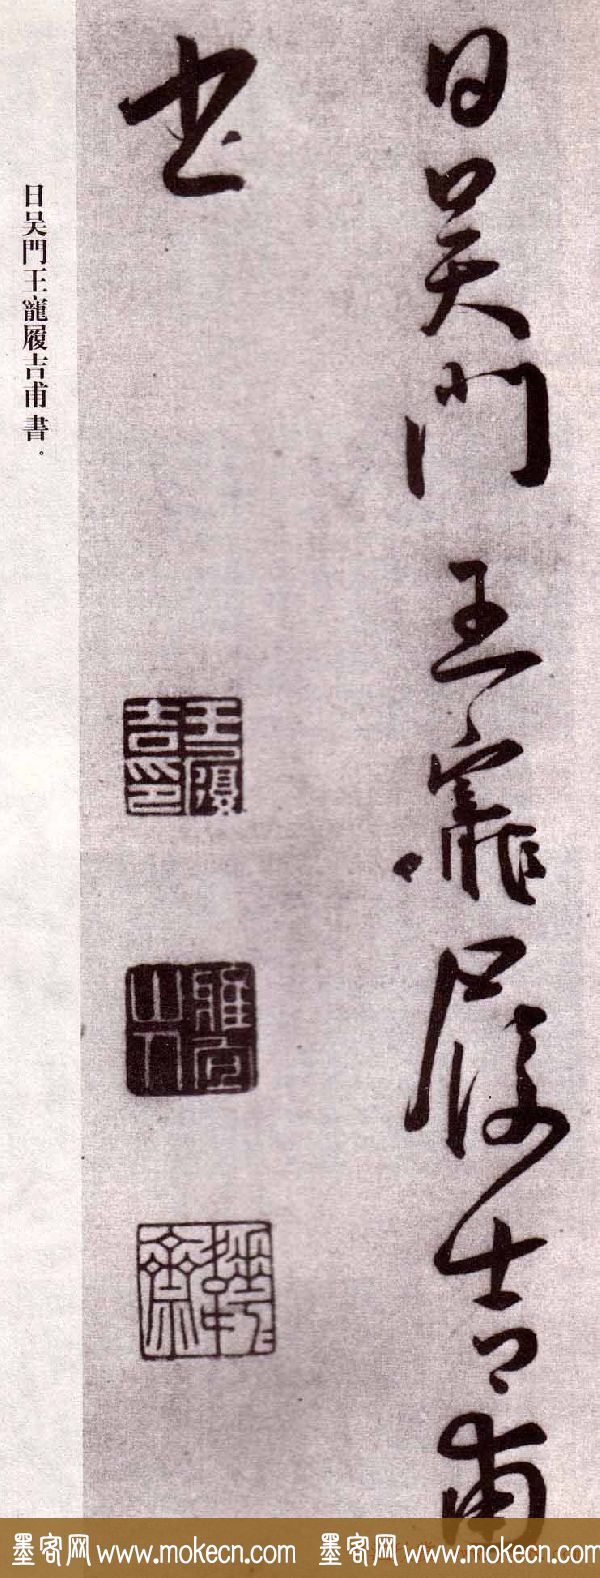 日吴門王寵履吉甫
书
王履吉印
雅宜山人
日吴門王寵履吉甫書。
墨客网 www.mokecn.com 墨客网 www.mokecn.com